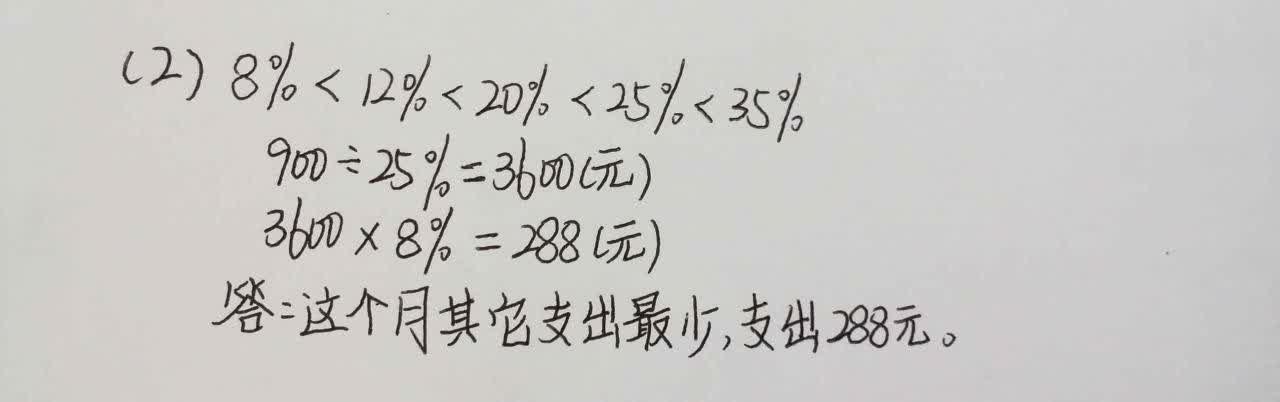 (2) 8% < 12% < 20% < 25% < 35%
900÷25%=3600(元)
3600×8%=288(元)
答:这个月其它支出最少,支出288元。